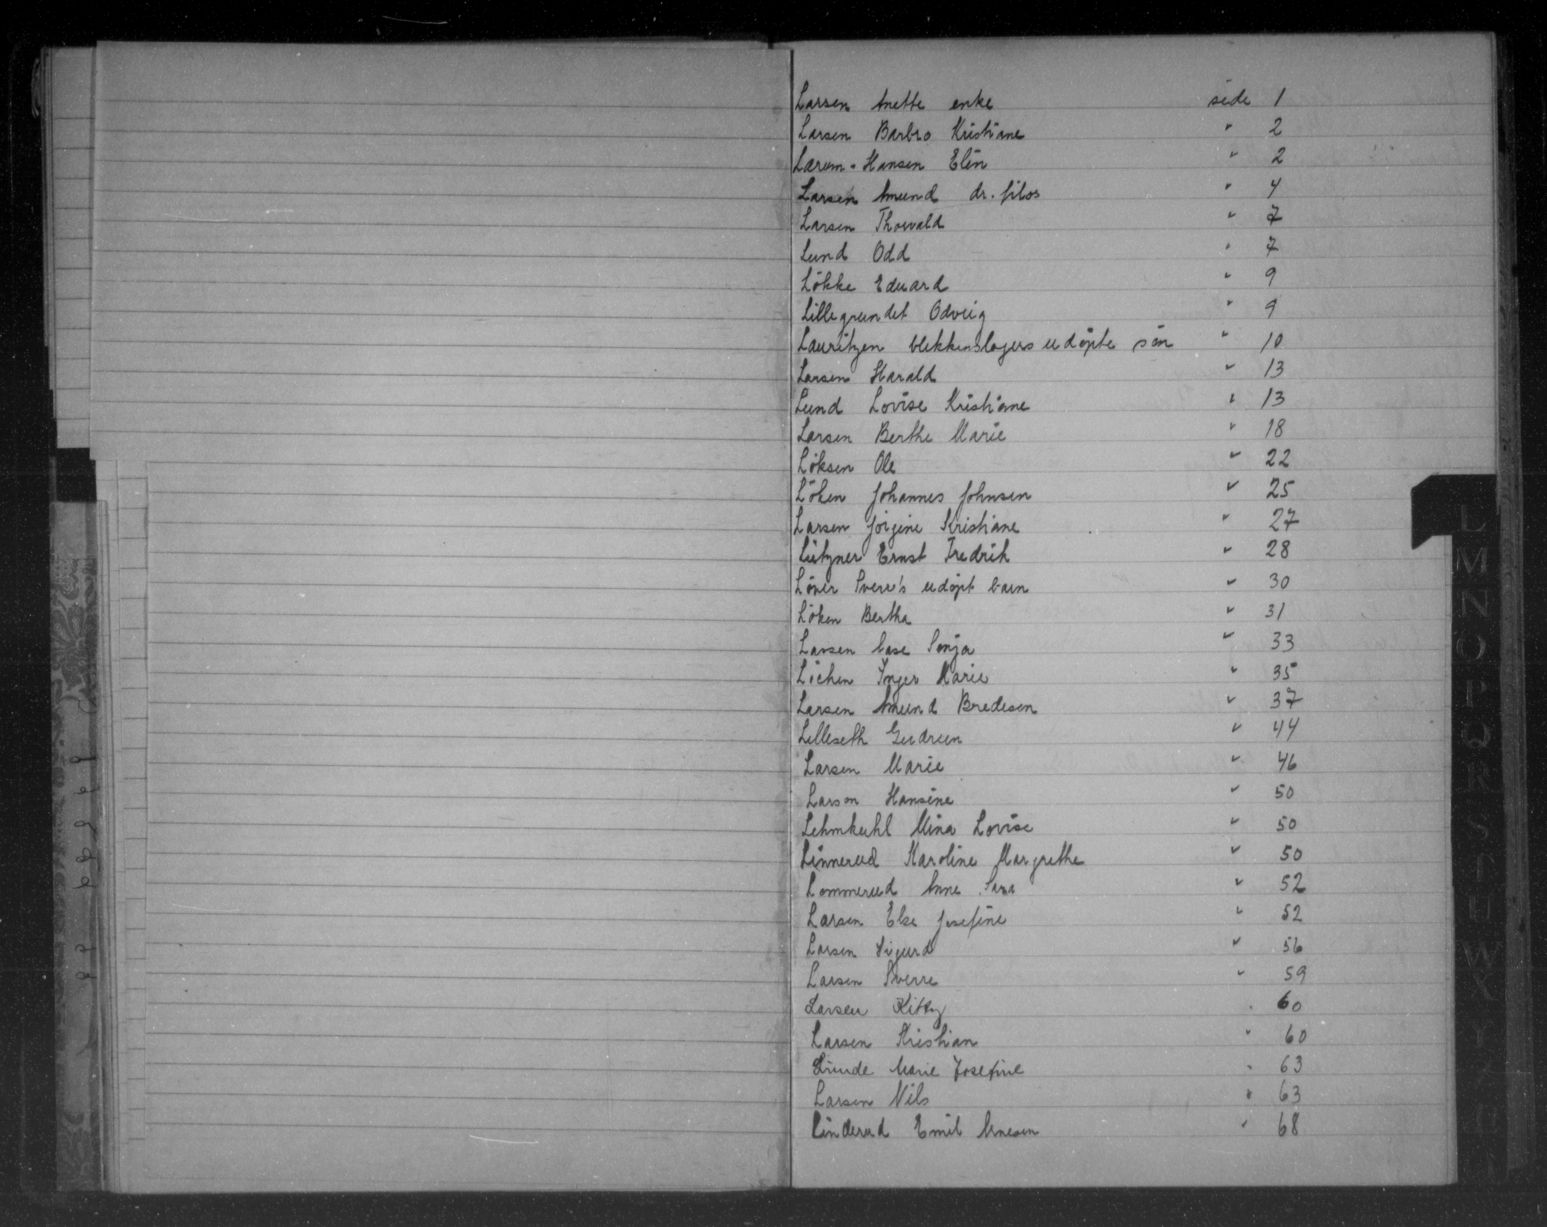 Larsen Anette enke side 1
Larsen Barbro Kristiane " 2
Larum-Hansen Elin " 2
Larsen Amund dr. filos " 4
Larsen Thorvald " 7
Lund Odd " 7
Løkke Edvard " 9
Lillegrundet Odveig " 9
Lauritzen blikkenslagers udøpte søn " 10
Larsen Harald " 13
Lund Lovise Kristiane " 13
Larsen Berthe Marie " 18
Løksen Ole " 22
Löken Johannes Johnsen " 25
Larsen Jørgine Kristiane " 27
Lützner Ernst Fredrik " 28
Löver Sverre's udøpt barn " 30
Löken Berthe " 31
Larsen Aase Sonja " 33
Löchen Inger Marie " 35
Larsen Amund Bredesen " 37
Lilleseth Gudrun " 44
Larsen Marie " 46
Larson Hansine " 50
Lehmkuhl Mina Lovise " 50
Linnerud Karoline Margrethe " 50
Lommerud Anne Sara " 52
Larsen Else Josefine " 52
Larsen Sigurd " 56
Larsen Sverre " 59
Larsen Kitty " 60
Larsen Kristian " 60
Linde Marie Josefine " 63
Larsen Nils " 63
Linderud Emil Arnesen " 68
L
M
N
O
P
Q
R
S
T
U
W